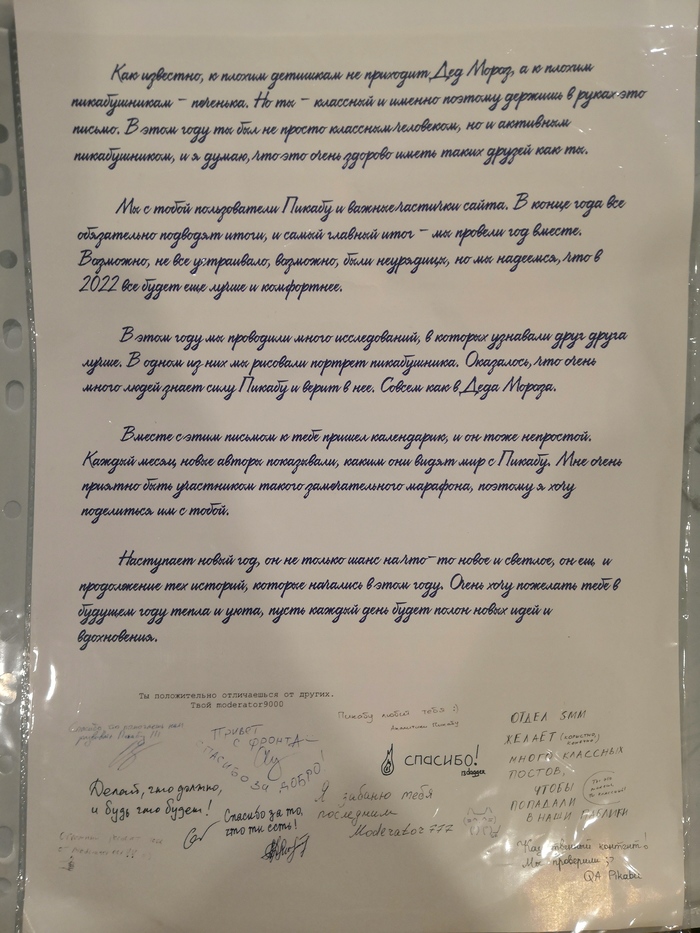 Как известно, к плохим детишкам не приходит Дед Мороз, а к плохим
пикабушникам – печенька. Но ты – классный и именно поэтому держишь в руках это
письмо. В этом году ты был не просто классным человеком, но и активным
пикабушником, и я думаю, что это очень здорово иметь таких друзей как ты.
Мы с тобой пользователи Пикабу и важные частички сайта. В конце года все
обязательно подводят итоги, и самый главный итог – мы провели год вместе.
Возможно, не все устраивало, возможно, были неурядицы, но мы надеемся, что в
2022 все будет еще лучше и комфортнее.
В этом году мы проводили много исследований, в которых узнавали друг друга
лучше. В одном из них мы рисовали портрет пикабушника. Оказалось, что очень
много людей знает силу Пикабу и верит в нее. Совсем как в Деда Мороза.
Вместе с этим письмом к тебе пришел календарик, и он тоже непростой.
Каждый месяц новые авторы показывали, каким они видят мир с Пикабу. Мне очень
приятно быть участником такого замечательного марафона, поэтому я хочу
поделиться им с тобой.
Наступает новый год, он не только шанс на что-то новое и светлое, он ещ и
продолжение тех историй, которые начались в этом году. Очень хочу пожелать тебе в
будущем году тепла и уюта, пусть каждый день будет полон новых идей и
вдохновения.
Ты положительно отличаешься от других.
Твой moderator9000
Пикабу любит тебя :)
Аналитик Пикабу
ПРИВЕТ
С ФРОНТА
СПАСИБО ЗА ДОБРО!
спасибо!
Делай, что должно,
и будь что будет!
Спасибо за то,
что ты есть!
Я забаню тебя
последним
Moderator 777
ОТДЕЛ SMM
ЖЕЛАЕТ
МНОГО КЛАССНЫХ
ПОСТОВ,
ЧТОБЫ
ПОПАДАЛИ
В НАШИ ПАБЛИКИ
Качественный контент!
Мы проверили
QA Pikabu